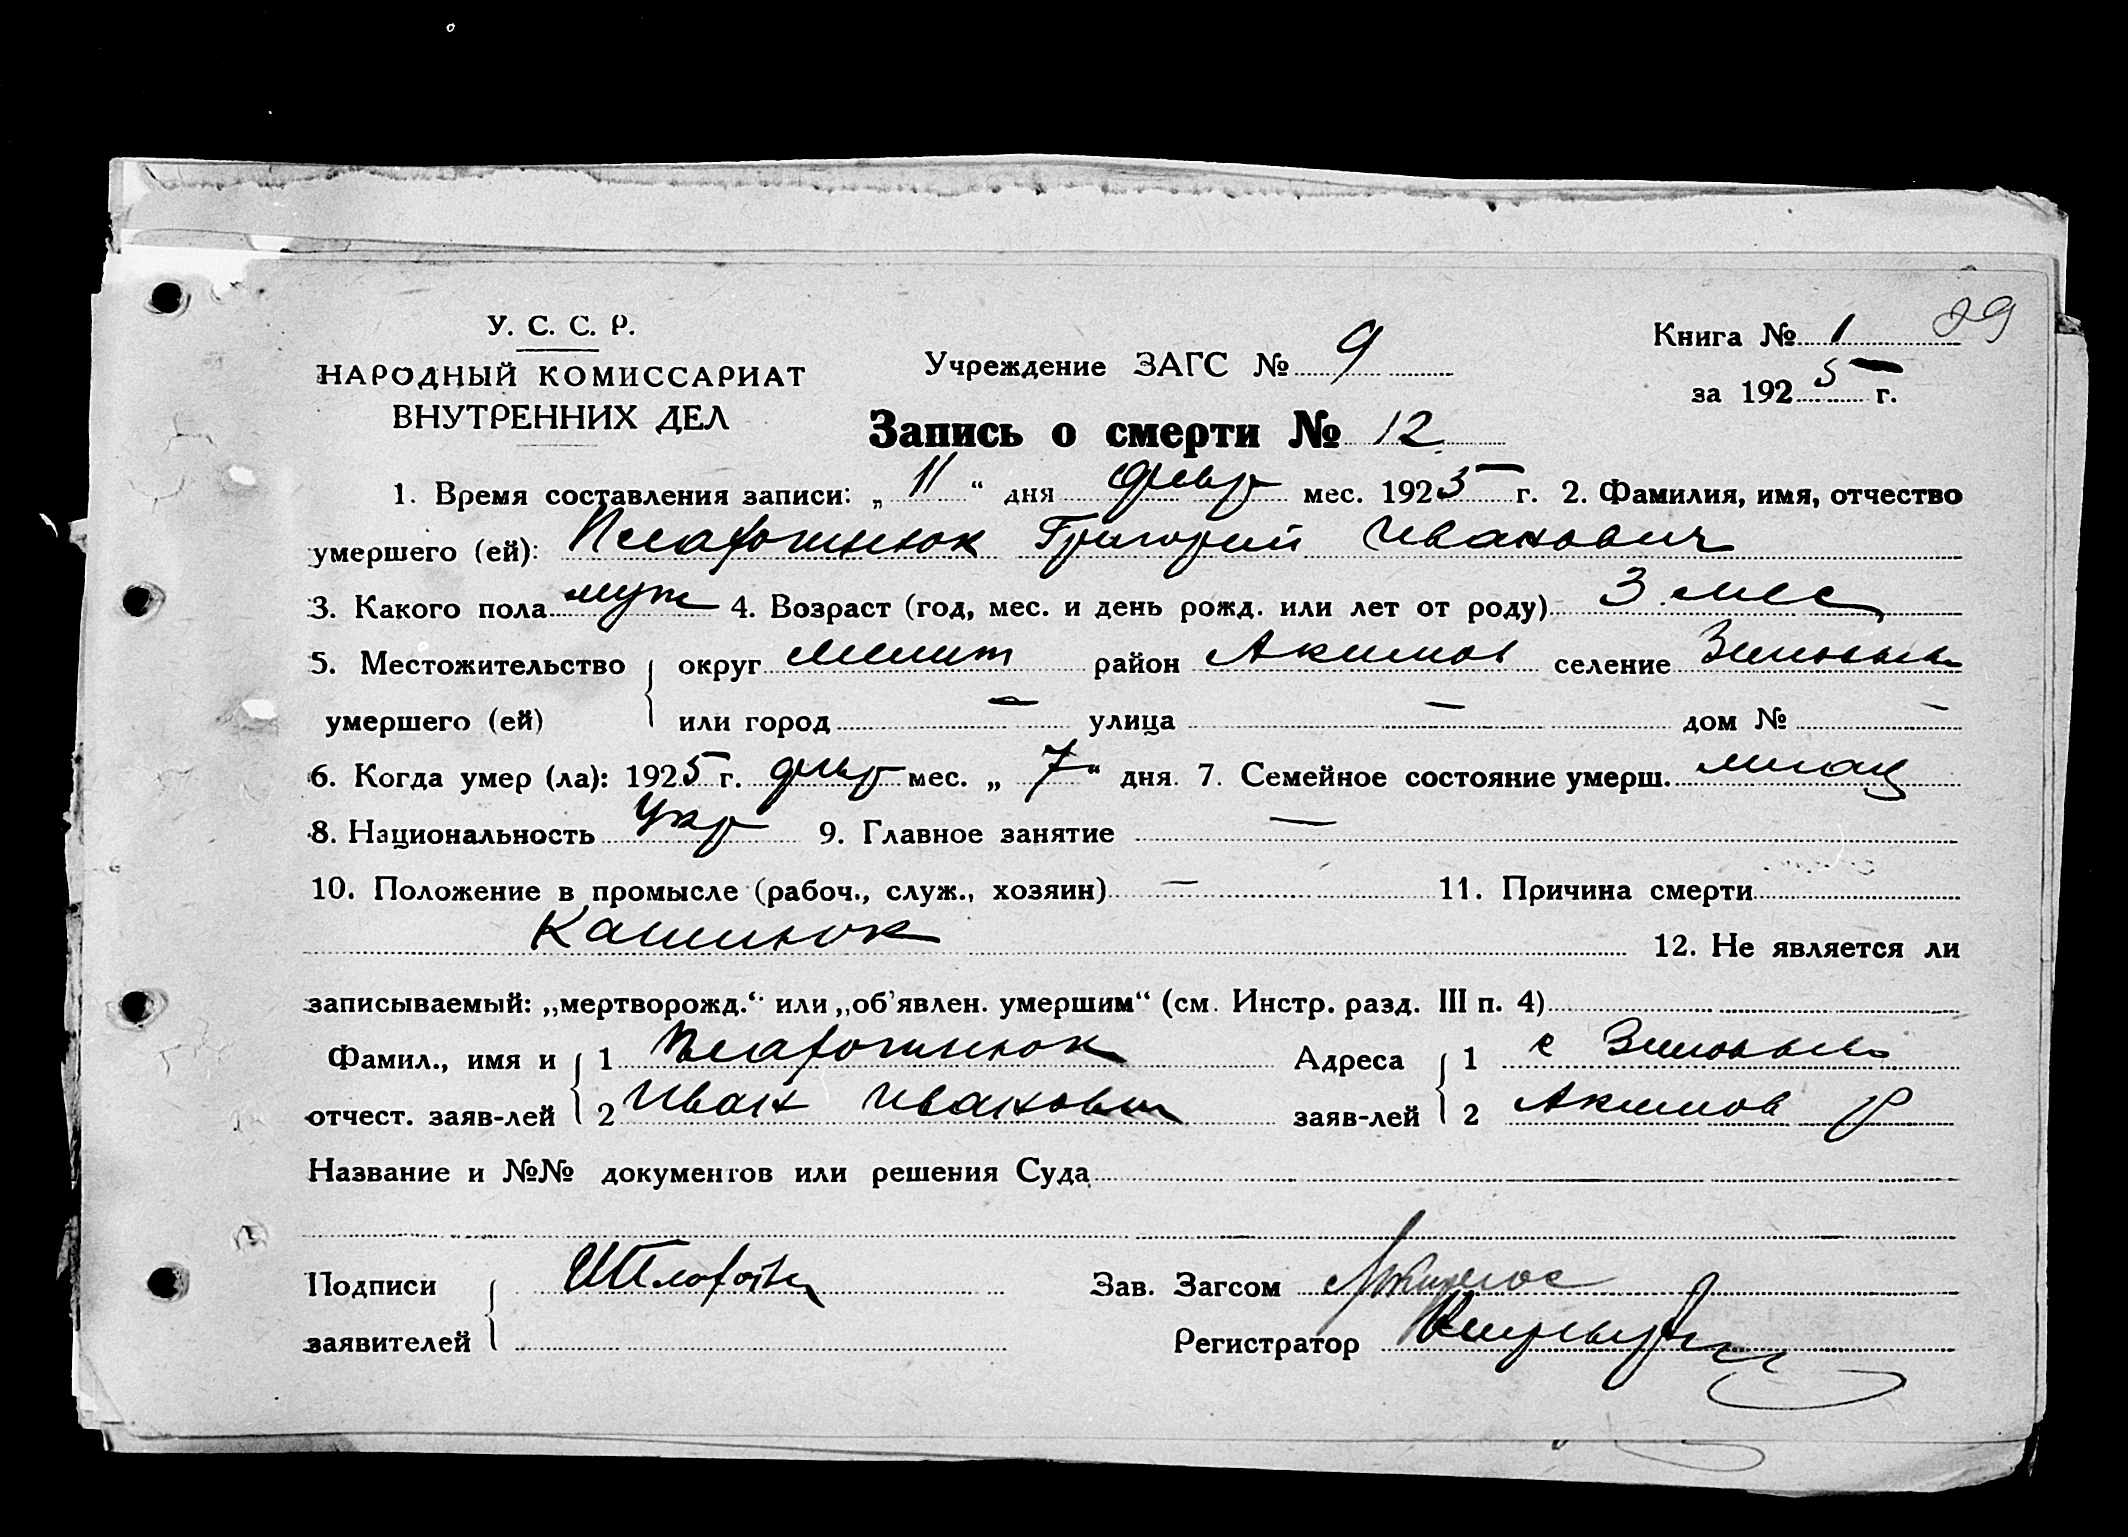 У. С. С. Р.
НАРОДНЫЙ КОМИССАРИАТ
ВНУТРЕННИХ ДЕЛ
Учреждение ЗАГС № 9
Книга № 1
89
за 1925 г.
Запись о смерти № 12
1. Время составления записи: „ 11 “ дня февр мес. 1925 г. 2. Фамилия, имя, отчество
умершего (ей): Григорий Иванович
3. Какого пола муж 4. Возраст (год, мес. и день рожд. или лет от роду) 3 мес
5. Местожительство округ Мелит район Акимов селение
умершего (ей) или город — улица — дом № —
6. Когда умер (ла): 1925 г. февр мес. „ 7 “ дня. 7. Семейное состояние умерш. млад
8. Национальность Укр 9. Главное занятие —
10. Положение в промысле (рабоч., служ., хозяин) — 11. Причина смерти
12. Не является ли
записываемый: „мертворожд.“ или „об'явлен. умершим“ (см. Инстр. разд. III п. 4)
Фамил., имя и 1 Адреса 1 с
отчест. заяв-лей 2 Иван Иванович заяв-лей 2 Акимов р
Название и №№ документов или решения Суда
Подписи Зав. Загсом
заявителей Регистратор